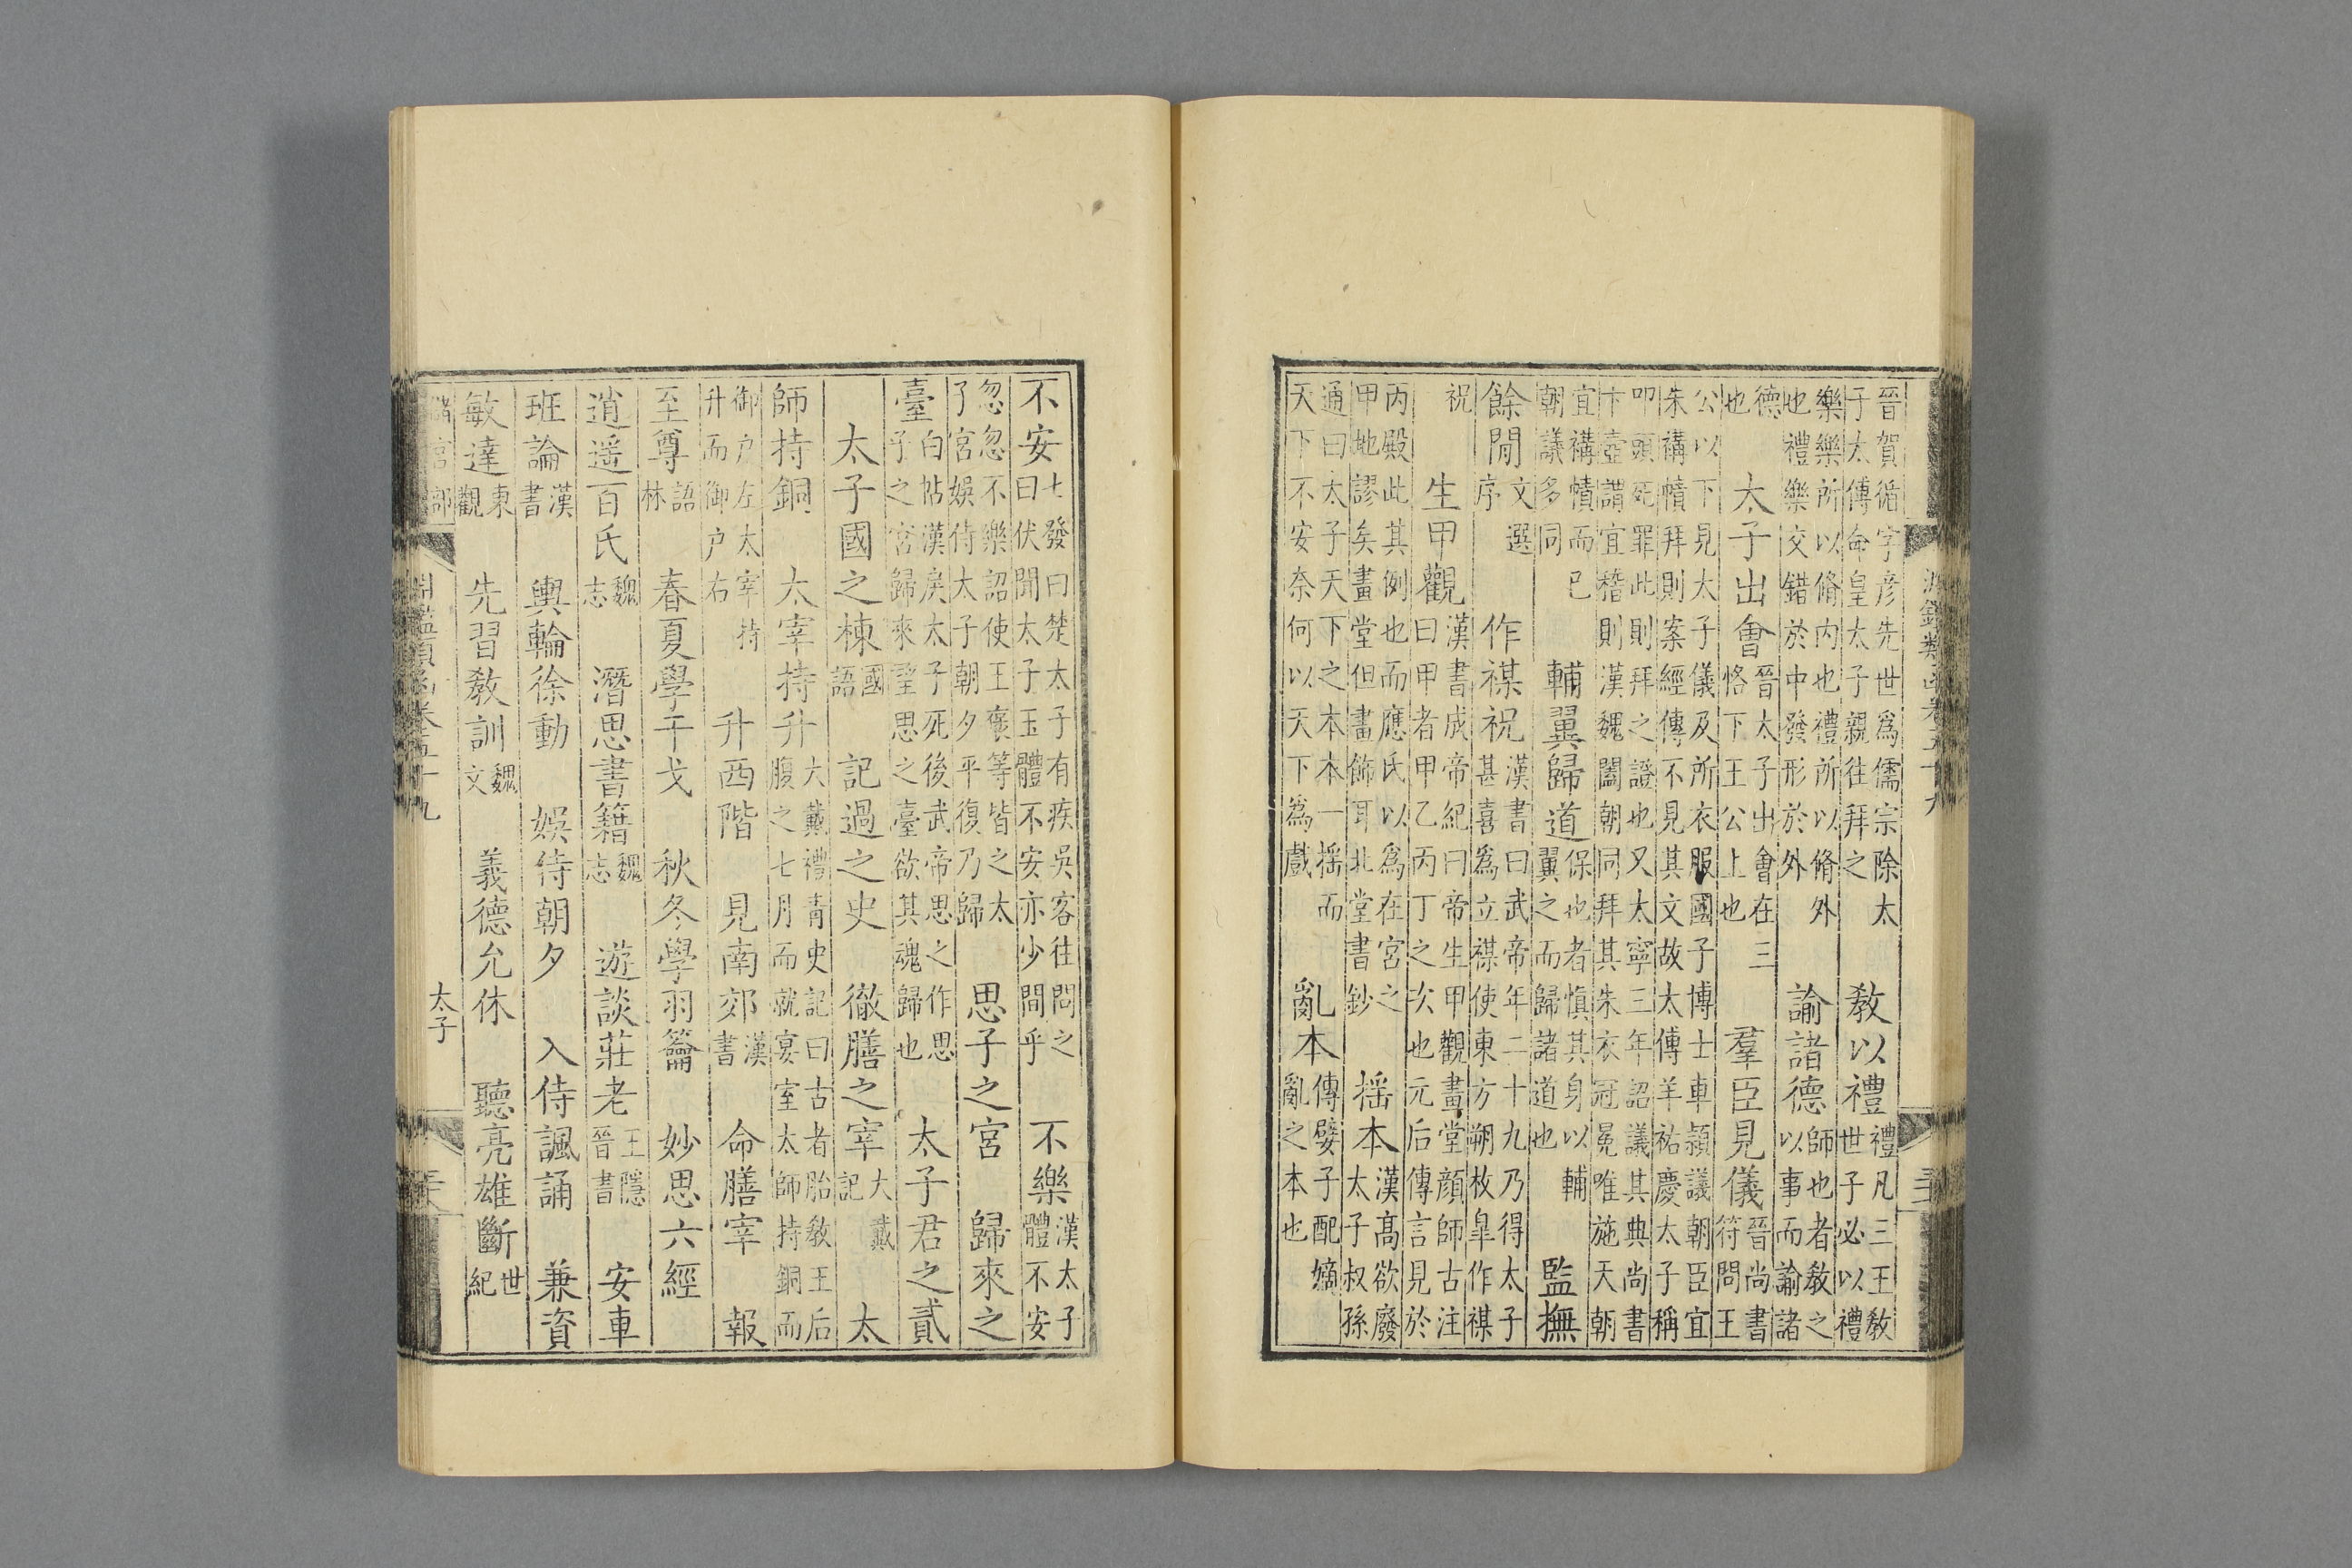 晉賀循字彥先世爲儒宗除太子太傅命皇太子親往拜之 教以禮禮凡三王教世子必以禮
樂樂所以脩内也禮所以脩外也禮樂交錯於中發形於外 諭諸德師也者教之以事而諭諸
德也 太子出會晉太子出會在三恪下王公上也 羣臣見儀晉尚書符問王
公以下見太子儀及所衣服國子博士車潁議朝臣宜朱褠幘拜則案經傳不見其文故太傅羊祜慶太子稱
叩頭死罪此則拜之證也又太寧三年詔議其典尚書卞壼謂宜稽則漢魏闔朝同拜其朱衣冠冕唯施天朝
宜褠幘而已朝議多同 輔翼歸道保也者愼其身以輔翼之而歸諸道也 監撫
餘閒文選序 作禖祝漢書曰武帝年二十九乃得太子甚喜爲立禖使東方朔枚臯作禖
祝 生甲觀漢書成帝紀曰帝生甲觀畫堂顏師古注曰甲者甲乙丙丁之次也元后傳言見於
丙殿此其例也而應氏以爲在宮之甲地謬矣畫堂但畫飾耳北堂書鈔 搖本漢高欲廢太子叔孫
通曰太子天下之本本一搖而天下不安奈何以天下爲戲 亂本傳嬖子配嫡亂之本也
不安七發曰楚太子有疾吳客往問之曰伏聞太子玉體不安亦少閒乎 不樂漢太子體不安
忽忽不樂詔使王褒等皆之太子宮娛侍太子朝夕平復乃歸 思子之宮 歸來之
臺白帖漢戾太子死後武帝思之作思子之宮歸來望思之臺欲其魂歸也 太子君之貳
太子國之棟國語 記過之史 徹膳之宰大戴記 太
師持銅 太宰持升大戴禮青史記曰古者胎教王后腹之七月而就宴室太師持銅而
御户左太宰持升而御户右 升西階 見南郊漢書 命膳宰 報
至尊語林 春夏學干戈 秋冬學羽籥 妙思六經
逍遥百氏魏志 潛思書籍魏志 遊談莊老王隱晉書 安車
班論漢書 輿輪徐動 娛侍朝夕 入侍諷誦 兼資
敏達東觀 先習教訓魏文 義德允休 聽亮雄斷世紀
儲宮部 淵鑑類函卷五十九 太子